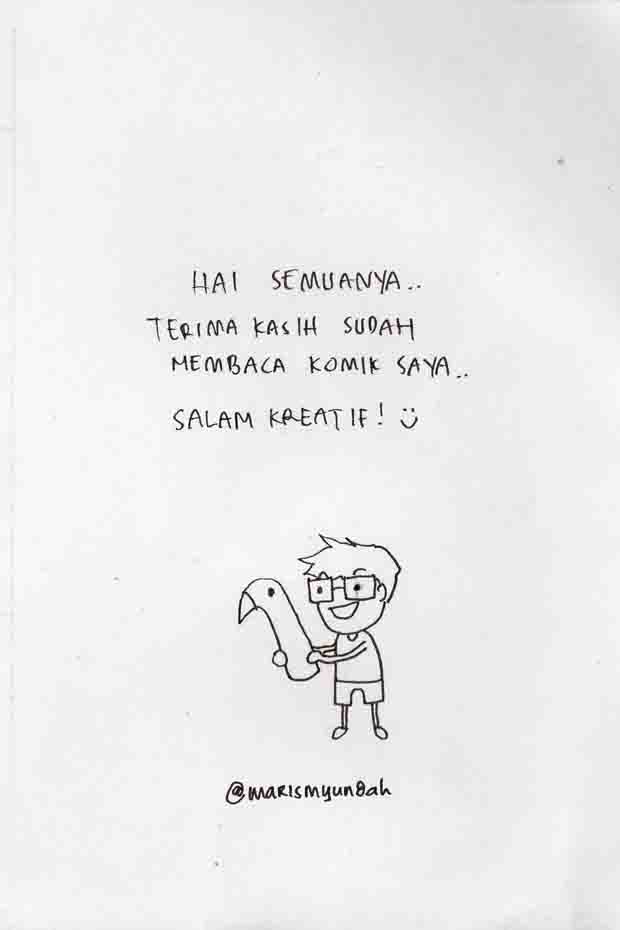 HAI SEMUANYA..
TERIMA KASIH SUDAH
MEMBACA KOMIK SAYA..
SALAM KREATIF! :)
@marismyundah